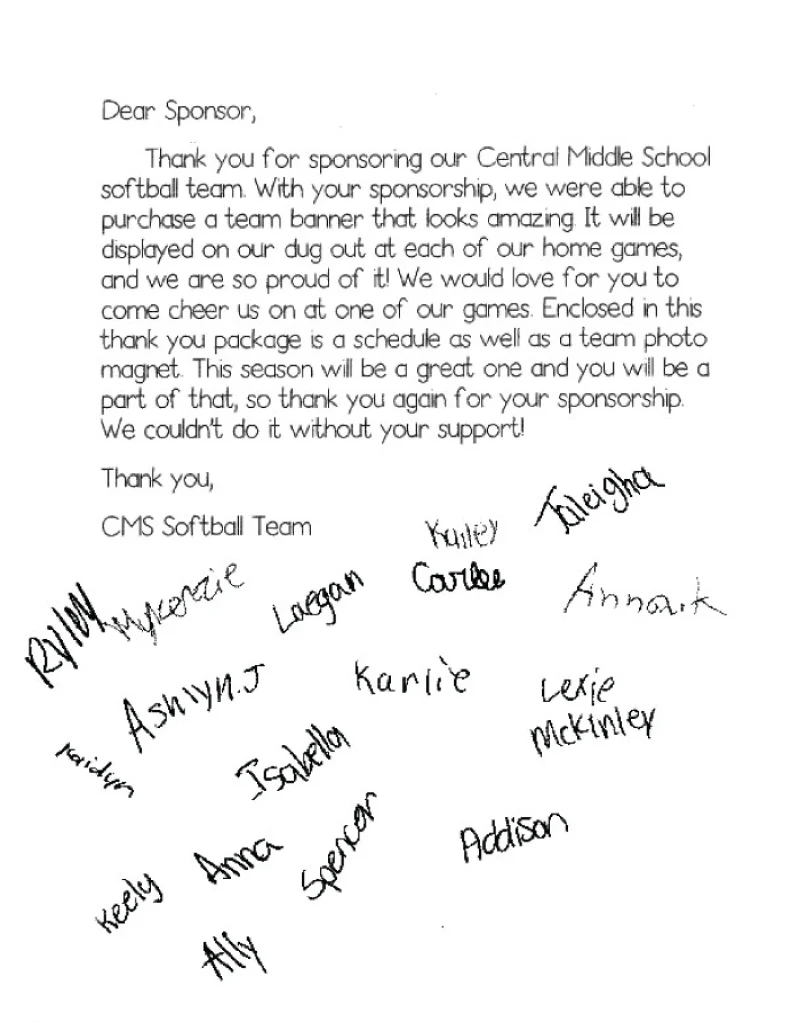 Dear Sponsor,
Thank you for sponsoring our Central Middle School
softball team. With your sponsorship, we were able to
purchase a team banner that looks amazing. It will be
displayed on our dug out at each of our home games,
and we are so proud of it! We would love for you to
come cheer us on at one of our games. Enclosed in this
thank you package is a schedule as well as a team photo
magnet. This season will be a great one and you will be a
part of that, so thank you again for your sponsorship.
We couldn't do it without your support!
Thank you,
CMS Softball Team
Kailey
Jaleigha
Rylly
Mykenzie
Laegan
Ashlyn.J
Karlie
Lexie
McKinley
Kaidyn
Isabella
Keely
Anna
Spencer
Addison
Ally